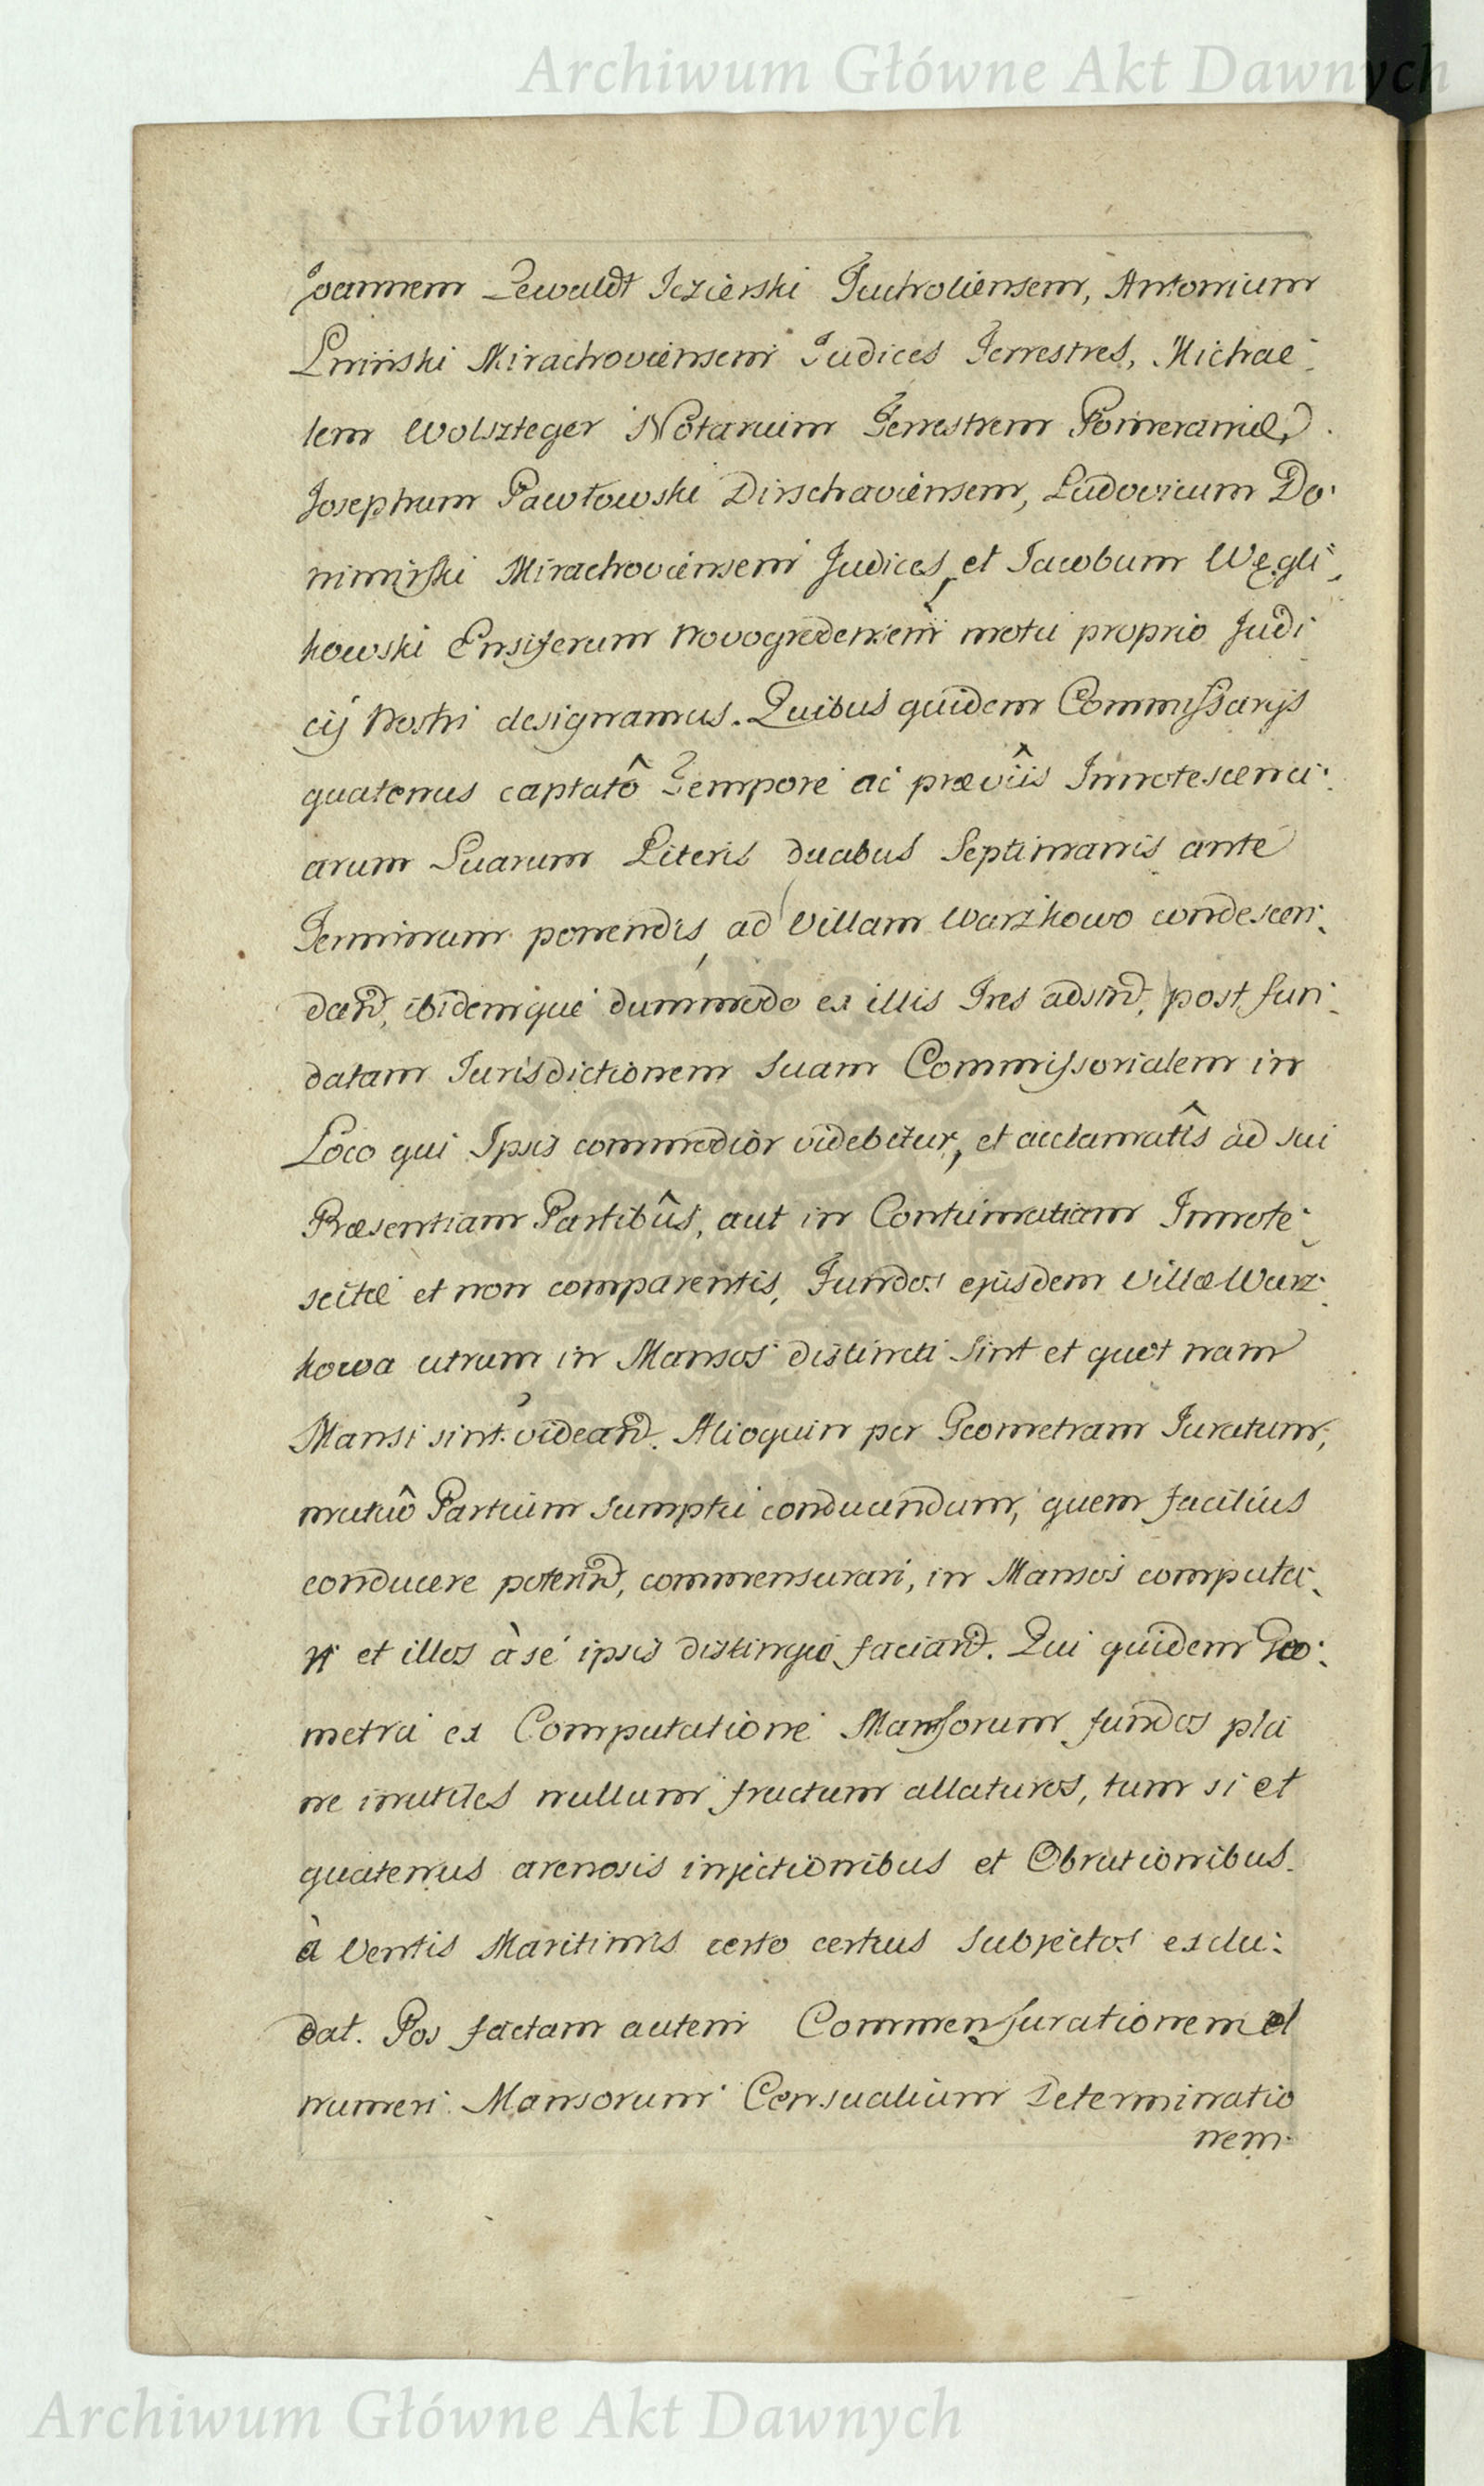 Archiwum Główne Akt Dawnych
Joannem Lewaldt Jezierski Tucholiensem, Antonium
Lniński Mirachoviensem Judices Terrestres, Michae-
lem Wolszleger Notarium Terrestrem Pomeraniæ,
Josephum Pawłowski Dirschaviensem, Ludovicum Do-
nimirski Mirachoviensem Judices, et Jacobum Węgli-
kowski Ensiferum Novogrodensem motu proprio Judi
cij Nostri designamus. Quibus quidem Commissarijs
quatenus captatô Tempore ac præviîs Innotescenti-
arum Suarum Literis duabus Septimanis ante
Terminum ponendis, ad Villam Warzkowo condescen-
dant, ibidemque dummodo ex illis Tres adsint, post fun-
datam Jurisdictionem suam Commissorialem in
Loco qui Ipsis commodior videbitur, et acclamatîs ad sui
Præsentiam Partibûs, aut in Contumatiam Innote-
scitæ et non comparentis, Fundos ejusdem Villæ Warz-
kowa utrum in Mansos distincti sint et quot nam
Mansi sint videant. Alioquin per Geometram Juratum,
mutuô Partium sumptu conducendum, quem facilius
conducere poterint, commensurari, in Mansos computa-
ri et illos à sé ipsis distingvi faciant. Qui quidem Geo-
metra ex Computatione Mansorum fundos pla
ne inutiles nullum fructum allaturos, tum si et
quatenus arenosis injectionibus et Obrutionibus
à Ventis Maritimis certo certius subjectos exclu-
dat. Pos factam autem Commensurationem et
numeri Mansorum Censualium Determinatio
nem
Archiwum Główne Akt Dawnych